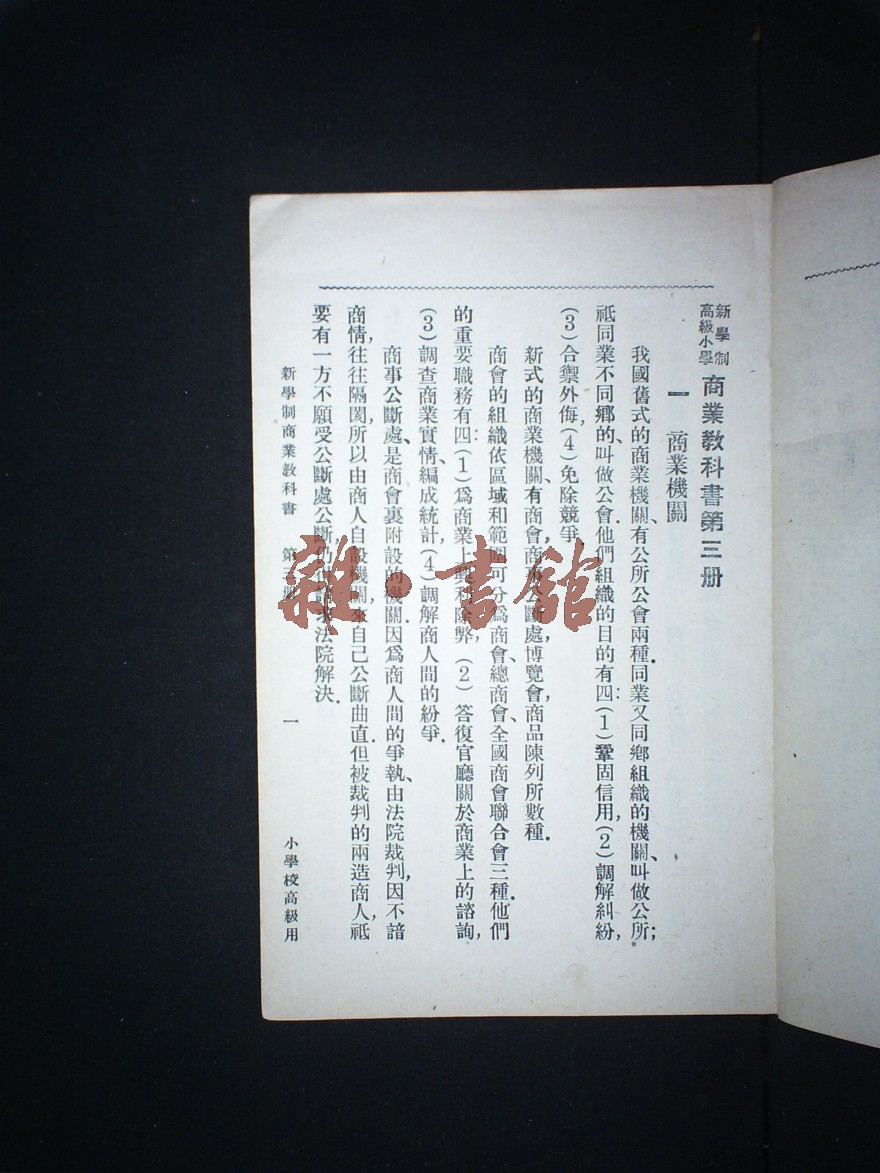 新學制
高級小學
商業教科書第三册
一　商業機關
我國舊式的商業機關、有公所公會兩種.同業又同鄉組織的機關、叫做公所;
祇同業不同鄉的、叫做公會.他們組織的目的有四:(1)鞏固信用,(2)調解糾紛,
(3)合禦外侮,(4)免除競爭.
新式的商業機關、有商會,商事公斷處博覽會,商品陳列所數種.
商會的組織依區域和範圍可分爲商會、總商會、全國商會聯合會三種.他們
的重要職務有四:(1)爲商業上興利除弊,(2)答復官廳關於商業上的諮詢,
(3)調查商業實情、編成統計,(4)調解商人間的紛爭.
商事公斷處、是商會裏附設的機關.因爲商人間的爭執、由法院裁判,因不諳
商情,往往隔閡,所以由商人自設機關,來自己公斷曲直.但被裁判的兩造商人,祇
要有一方不願受公斷處公斷,仍法院解決.
新學制商業教科書　第三册　一　小學校高級用
雜·書館